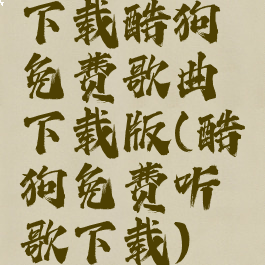 下载酷狗
免费歌曲
下载版(酷
狗免费听
歌下载)